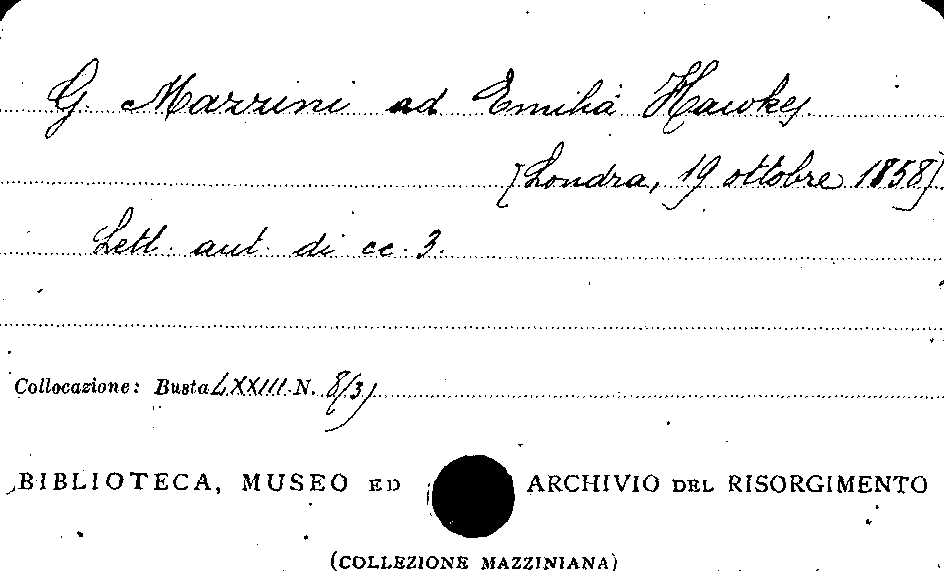 G. Mazzini ad Emilia Hawkes.
[Londra, 19 ottobre 1858]
Lett. aut. di cc. 3.
Collocazione: Busta LXXIII N. 8(3)
BIBLIOTECA, MUSEO ED ARCHIVIO DEL RISORGIMENTO
(COLLEZIONE MAZZINIANA)